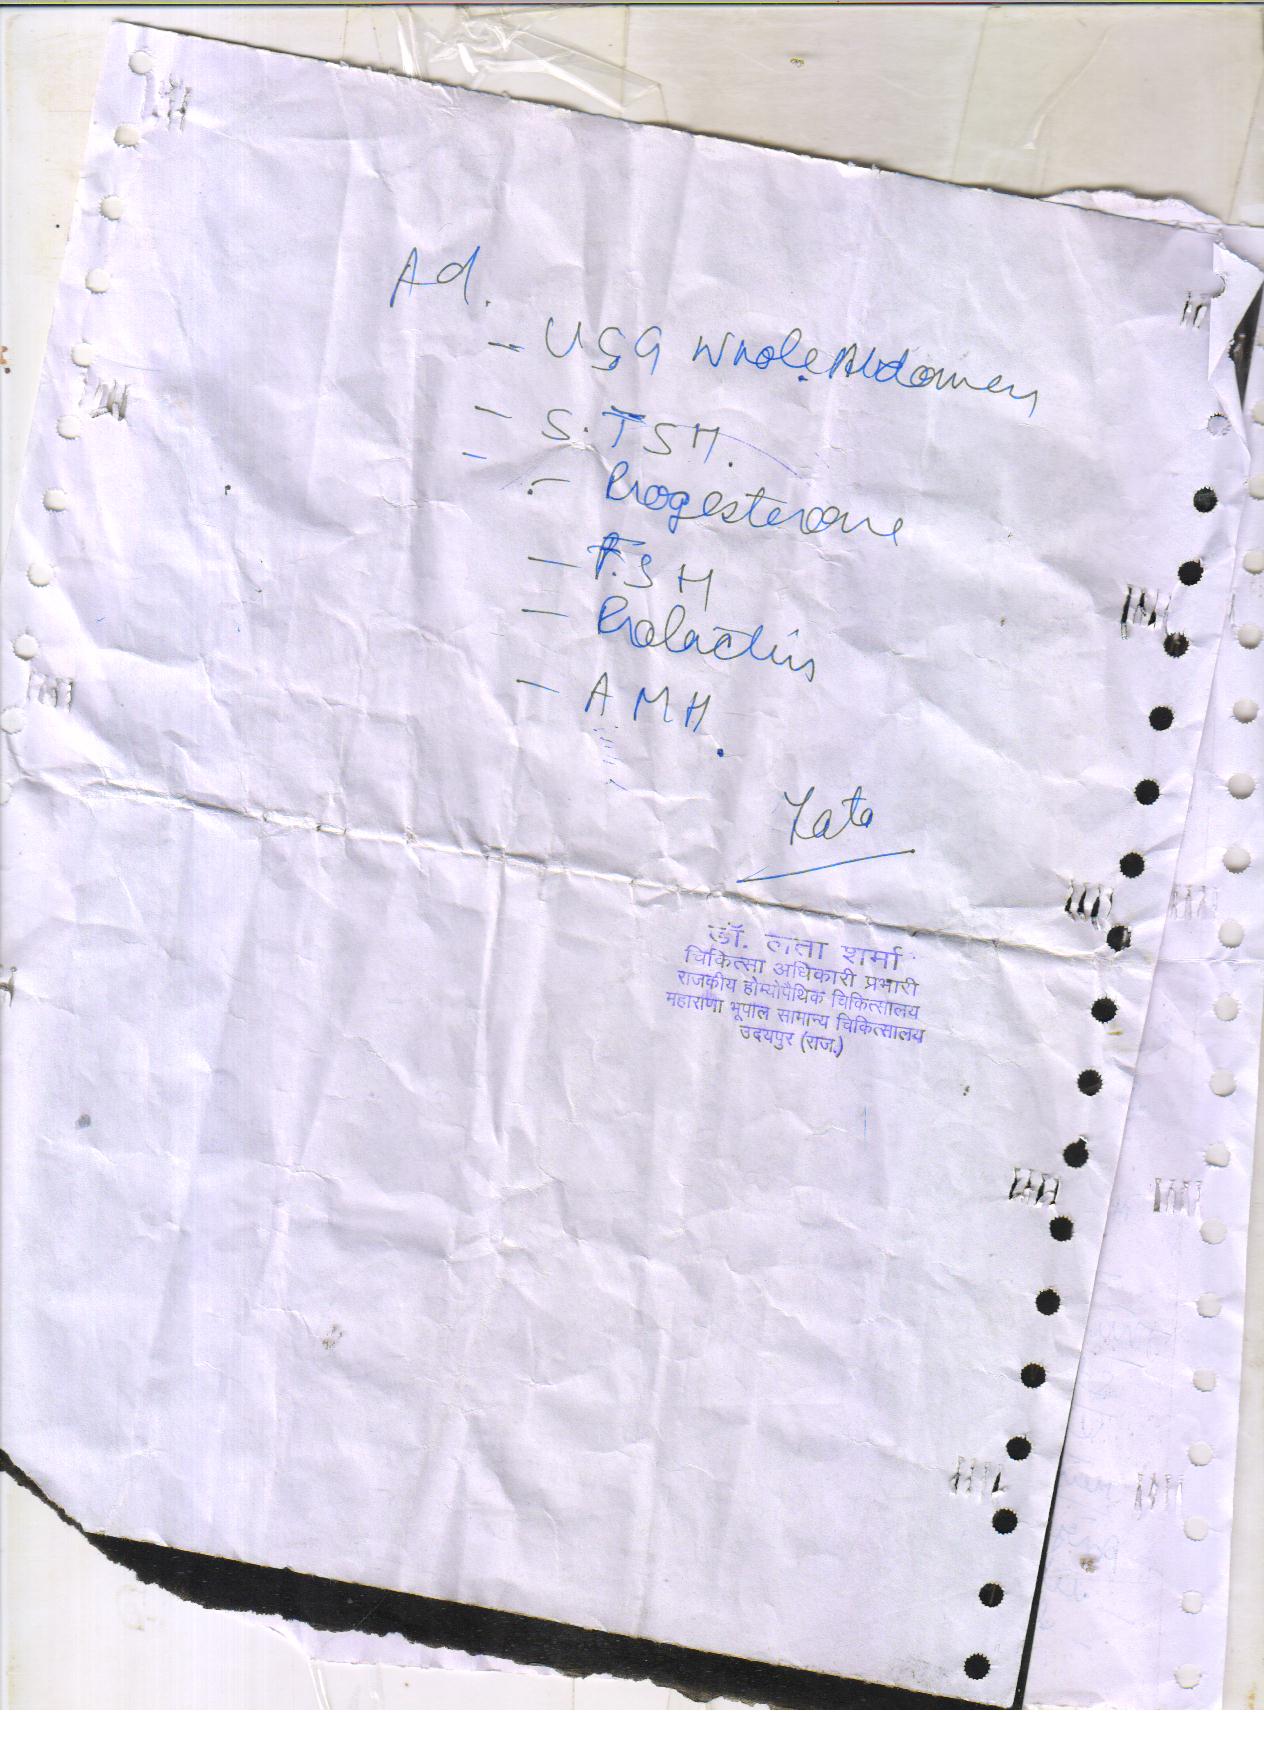 Ad.
- USG Whole Abdomen
- S. TSH.
- Progesterone
- F.S H
- Prolactin
- A M H.
Lata
डॉ. लता शर्मा
चिकित्सा अधिकारी प्रभारी
राजकीय होम्योपैथिक चिकित्सालय
महाराणा भूपाल सामान्य चिकित्सालय
उदयपुर (राज.)